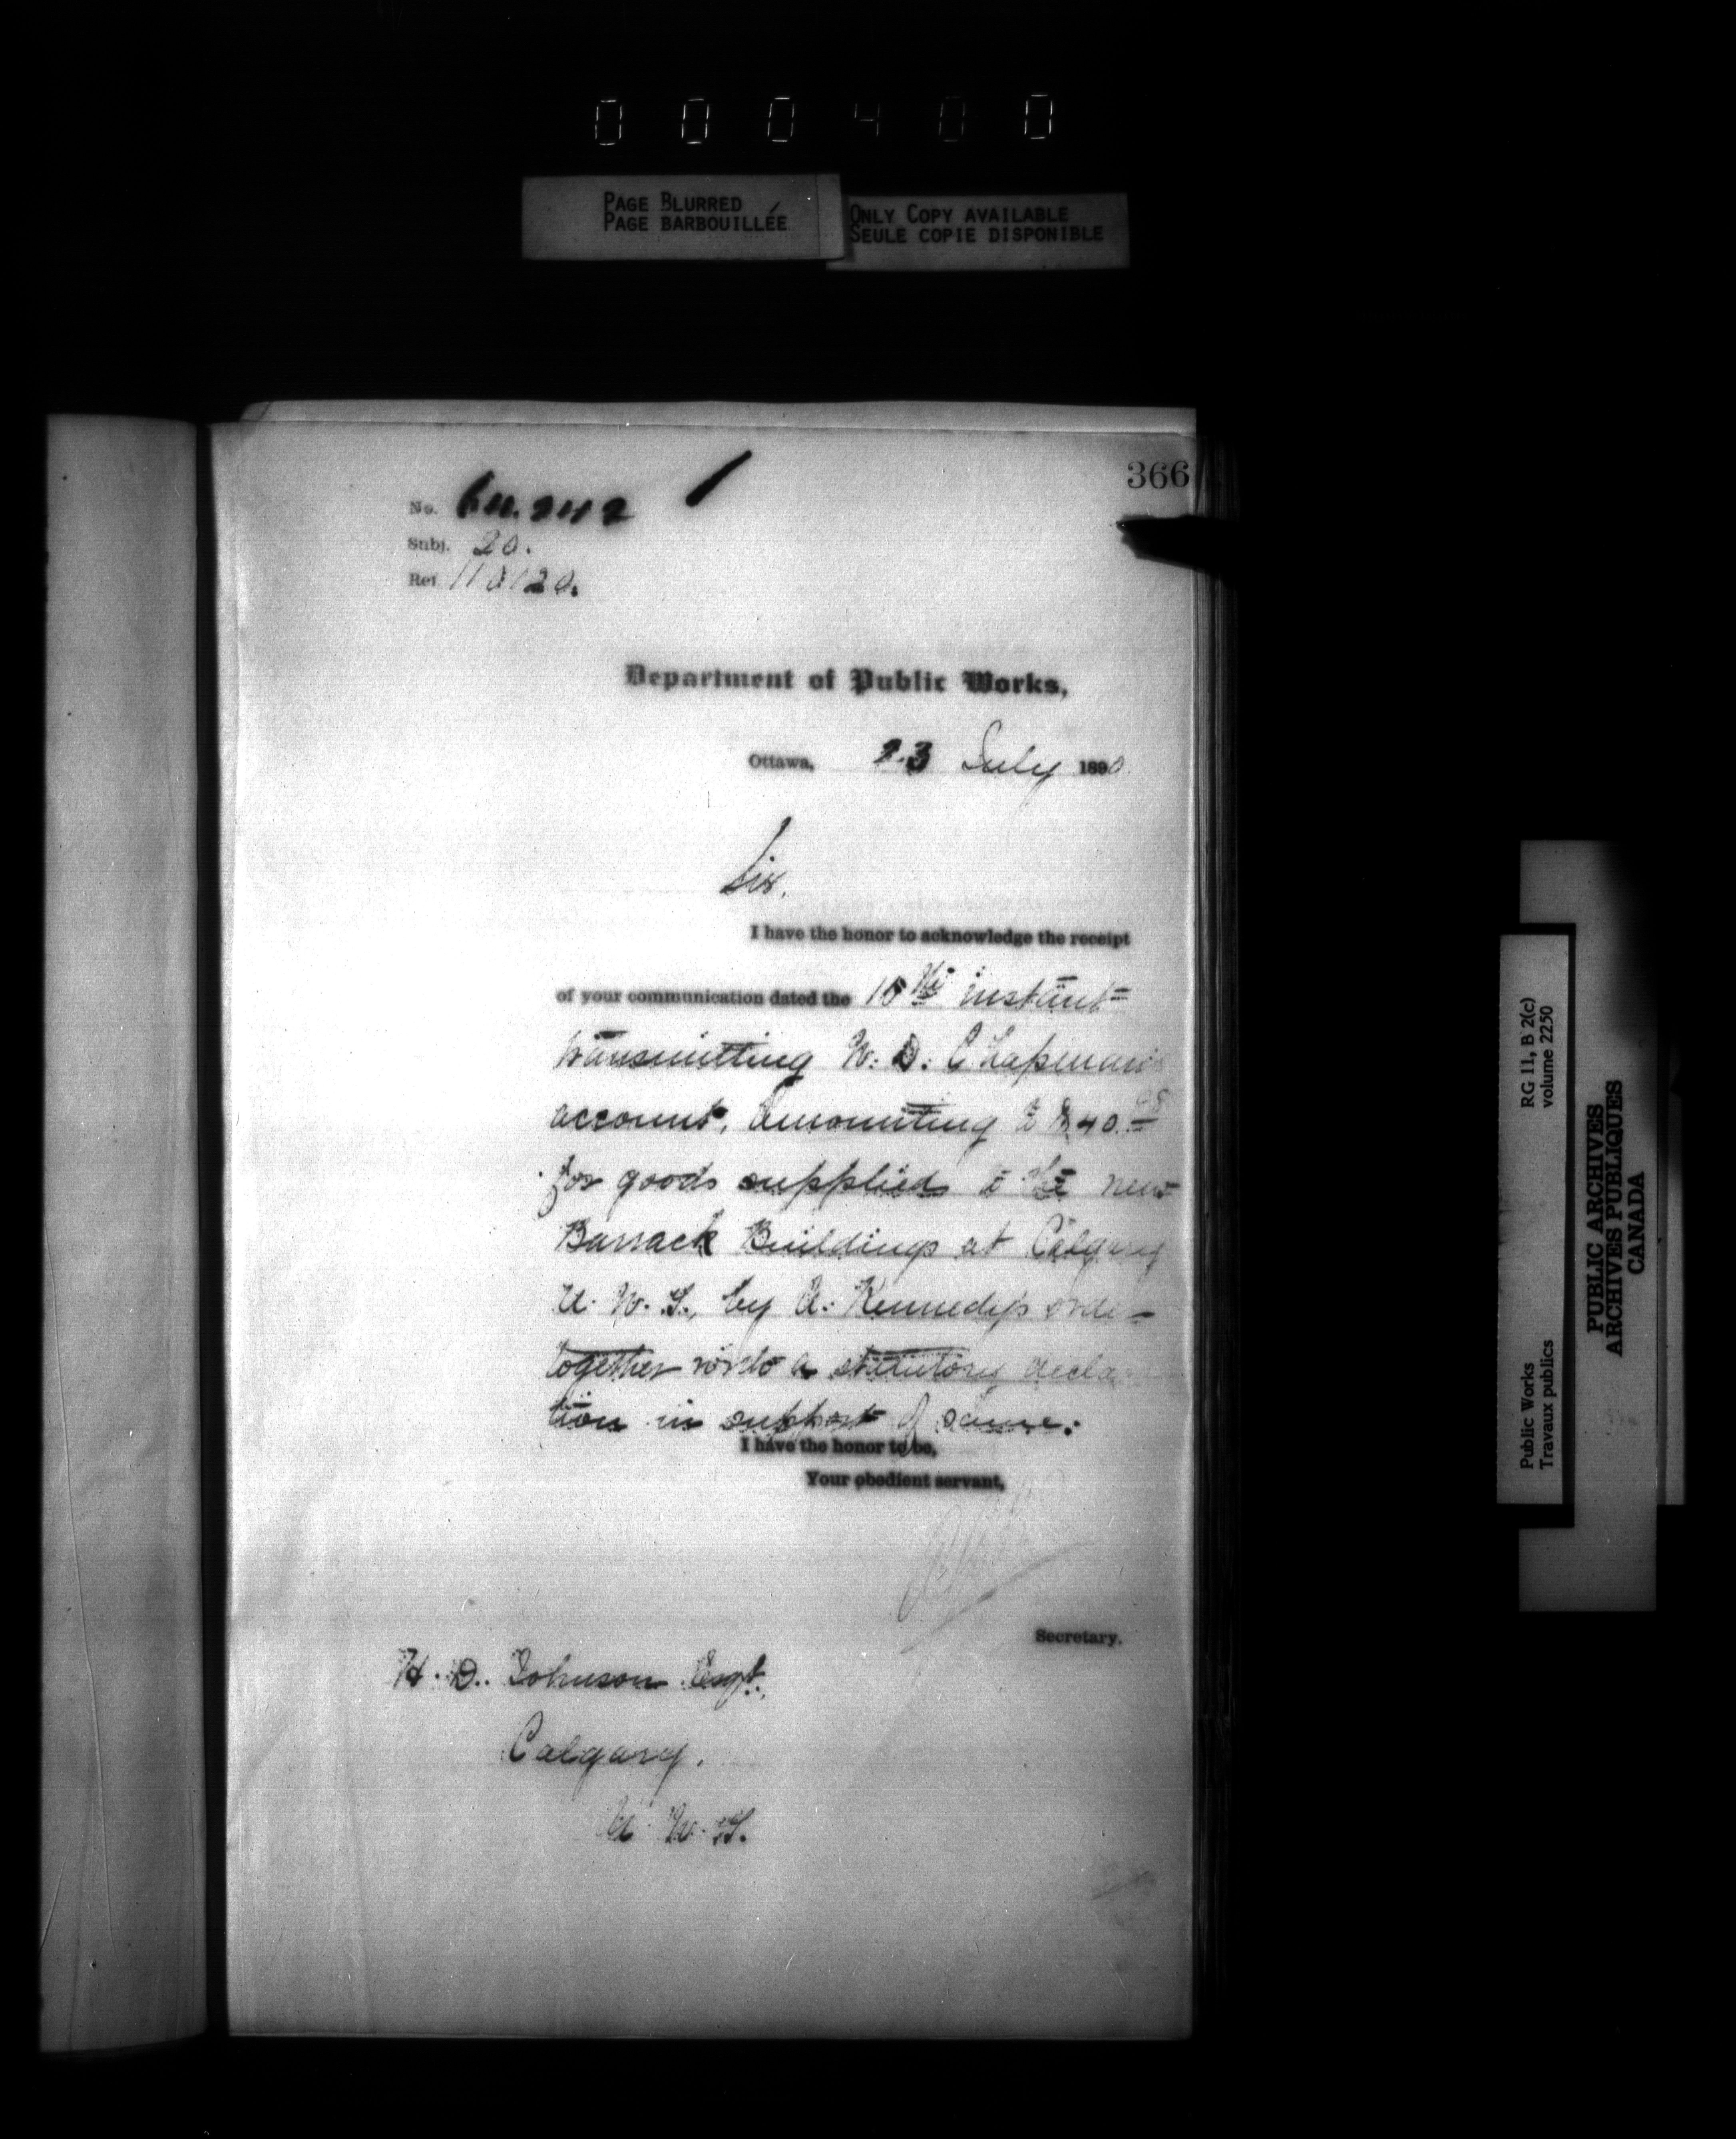 0 0 0 4 0 0
PAGE BLURRED
PAGE BARBOUILLÉE
ONLY COPY AVAILABLE
SEULE COPIE DISPONIBLE
366
No.
Subj. 20.
Ref 110120.
Department of Public Works,
Ottawa, 23 July 1890
Sir.
I have the honor to acknowledge the receipt
of your communication dated the 15th instant
transmitting W. D. Chapman's
account, amounting to $40.
for goods supplied to the new
Barrack Buildings at Calgary
N. W. T., by A. Kennedy's order
together with a statutory declara
tion in support of same.
I have the honor to be,
Your obedient servant,
Secretary.
H. D. Johnson Esqr.,
Calgary.
N. W. T.
Public Works
Travaux publics
RG 11, B 2(c)
volume 2250
PUBLIC ARCHIVES
ARCHIVES PUBLIQUES
CANADA